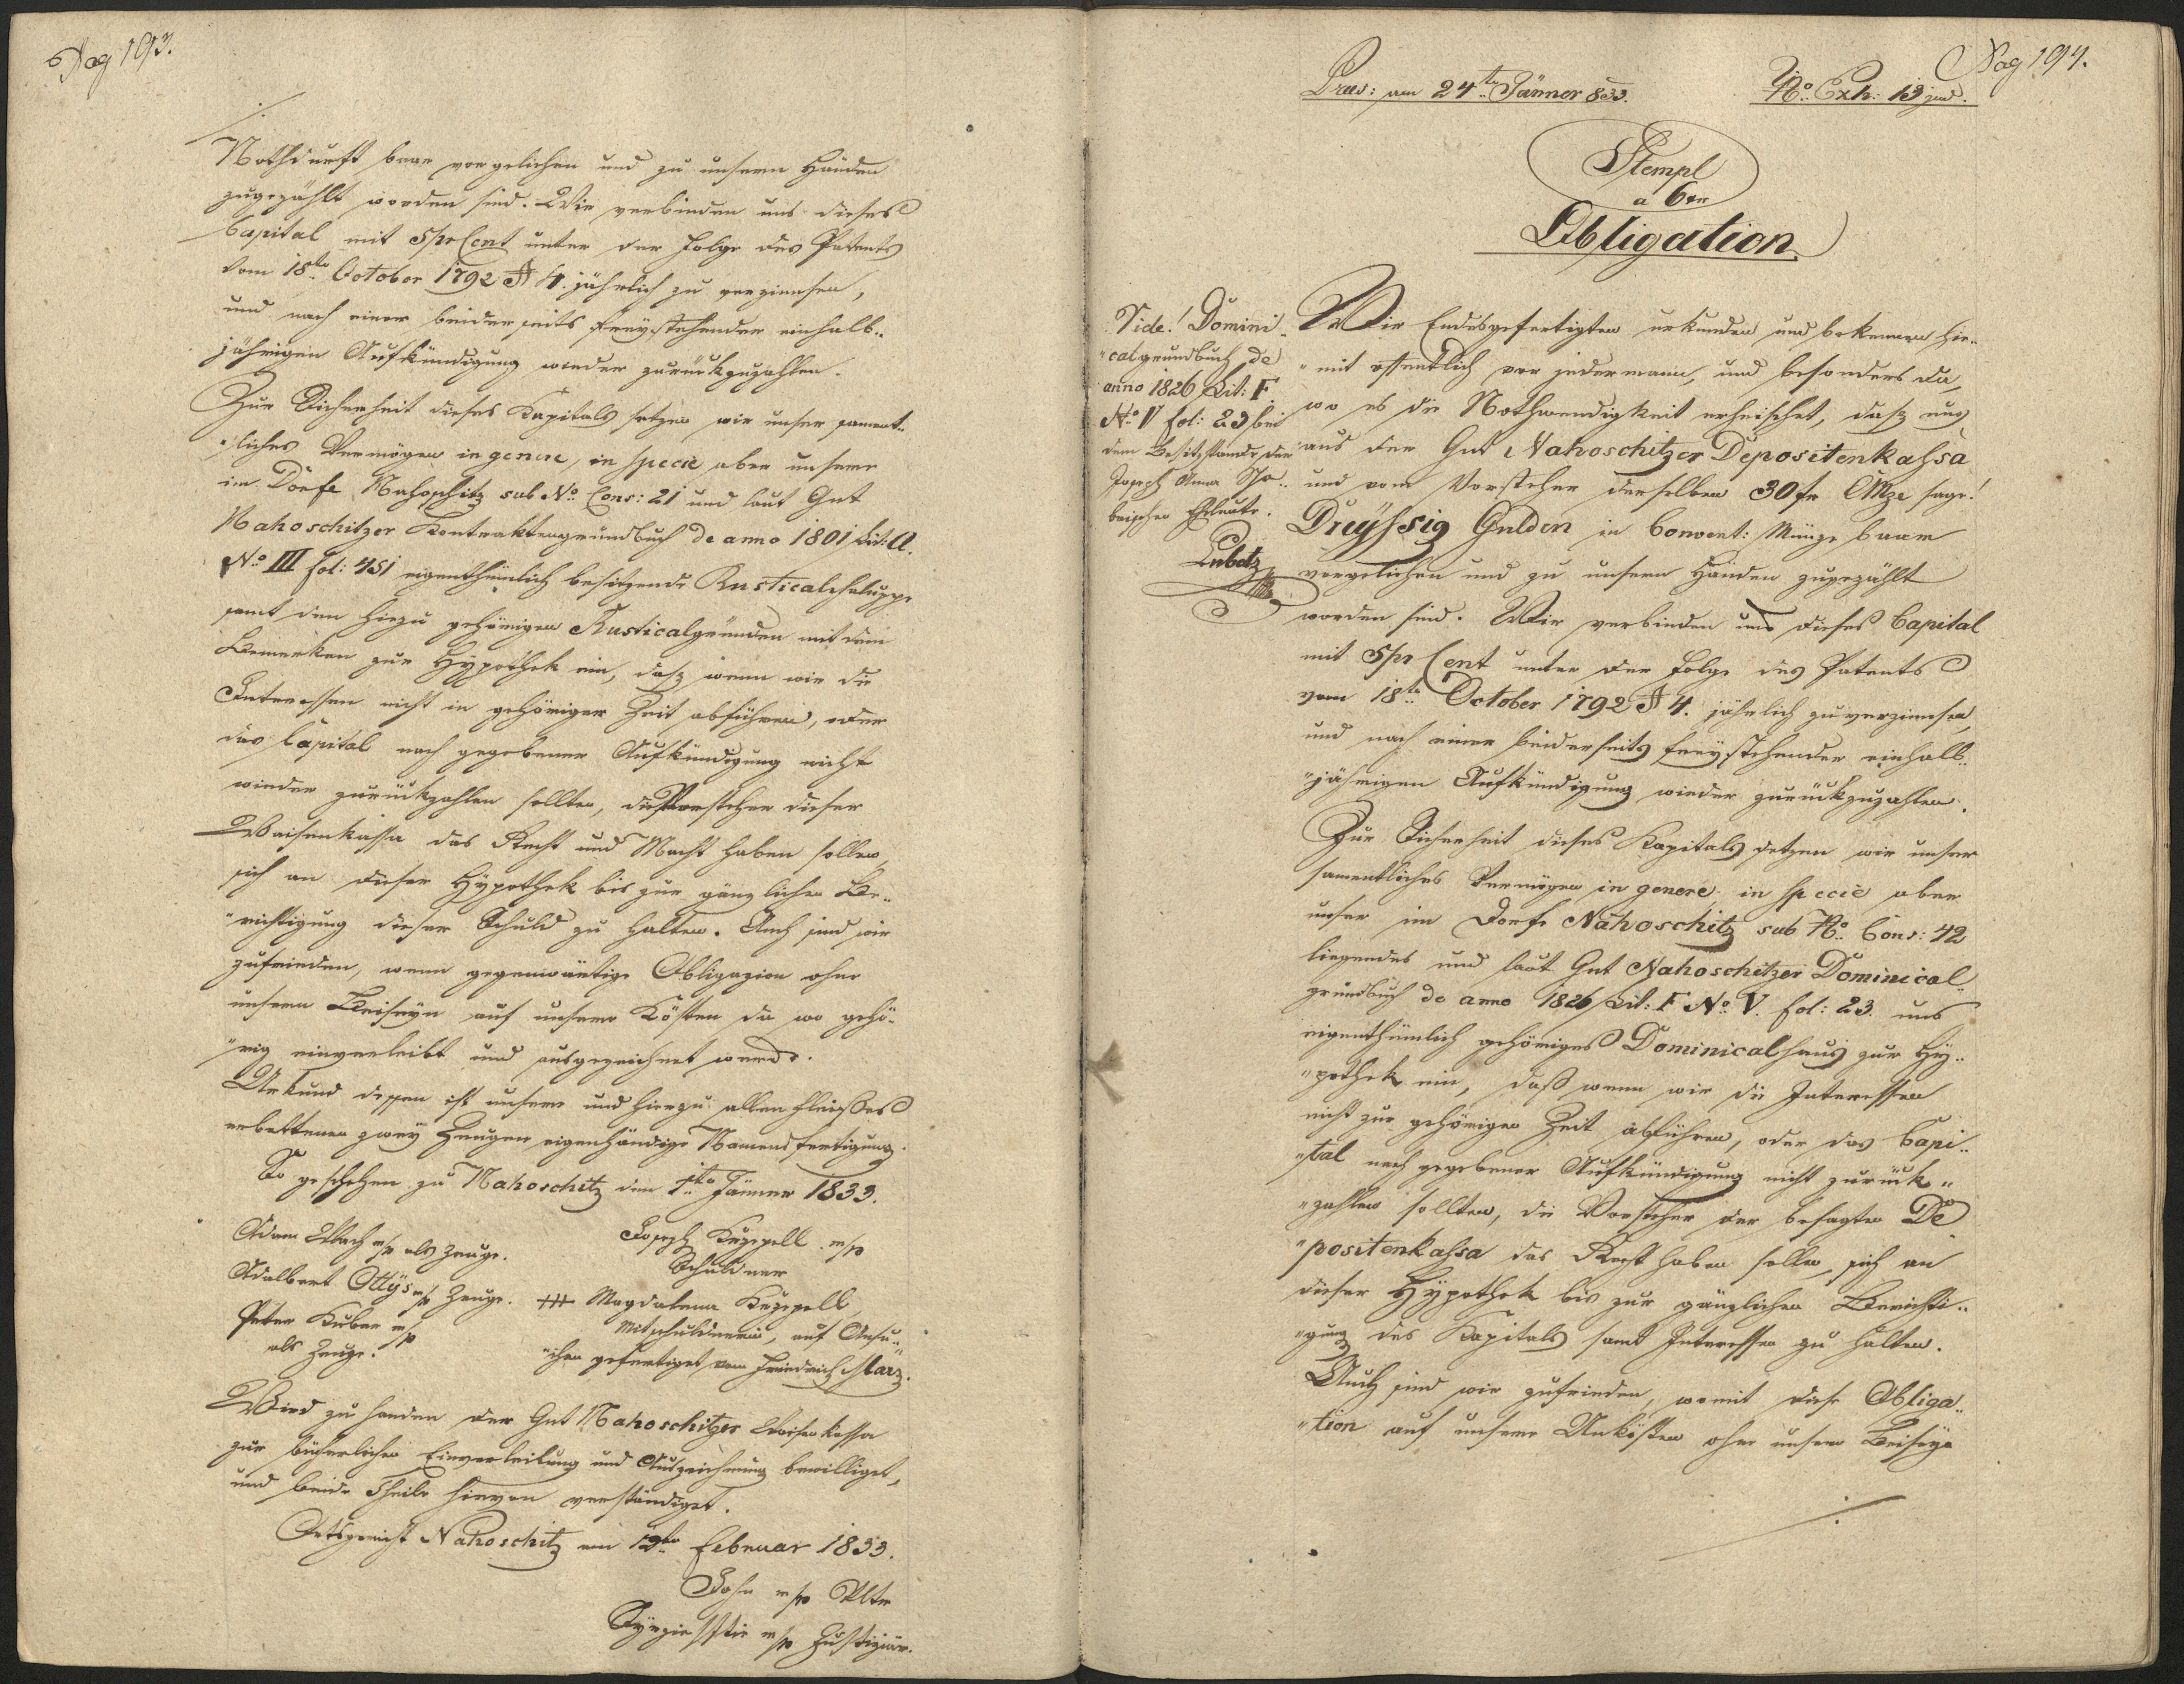 Pag 193.
Nothdurft baar vorgeliehen und zu unsern Händen
zugezählt worden sind. Wir verbinden uns dieses
Capital mit 5prCent unter der Folge des Patents
vom 18ten October 1792 § 4. jährlich zu verzinsen,
und nach einer beiderseits freystehenden einhalb„
jährigen Aufkündigung wieder zurückzuzahlen.
Zur Sicherheit dieses Kapitals setzen wir unser sament„
„liches Vermögen in genere, in specie aber unsere
im Dorfe Nahoschitz sub No Cons: 21 und laut Gut
Nahoschitzer Kontraktengrundbuch de anno 1801 Lit: A.
No III fol: 451 eigenthümlich besitzende Rusticalchaluppe
samt den hiezu gehörigen Rusticalgründen mit dem
Bemerken zur Hypothek ein, daß, wenn wir die
Interessen nicht in gehöriger Zeit abführen, oder
das Capital nach gegebener Aufkündigung nicht
wieder zurückzahlen sollten, die Vorsteher dieser
Waisenkassa das Recht und Macht haben sollen,
sich an dieser Hypothek bis zur gänzlichen Be„
„richtigung dieser Schuld zu halten. Auch sind wir
zufrieden, wenn gegenwärtige Obligazion ohne
unsern Beiseyn auf unsere Kösten da wo gehö„
„rig einverleibt und ausgezeichnet werde.
Urkund dessen ist unsere und hierzu allen Fleißes
erbettener zwey Zeugen eigenhändige Namensfertigung.
So geschehen zu Nahoschitz den 1ten Jänner 1833.
Adam Wach m/p als Zeuge.
Adalbert Ottys m/p Zeuge.
Peter Kuber m/p
als Zeuge.
Joseph m/p
Schuldner
+++ Magdalena
Mitschuldnerin, auf Ansu„
„chen gefertiget von Friedrich Marz.
Wird zu Handen der Gut Nahoschitzer Waisenkassa
zur bücherlichen Einverleibung und Auszeichnung bewilliget,
und beide Theile hievon verständiget.
Ortsgericht Nahoschitz am Februar 1833.
m/p
m/p Justiziär.
Pag 194.
Præs: am 24ten Jänner 833.
No Exh: 13 jud.
Stempl
a 6 xr
Obligation
Vide! Domini
„calgrundbuch de
anno 1826 Lit: F
No V fol: 23 bei
dem Besitzstande der
Joseph Anna
beischen Eheleute.
Lubetz
Wir Endesgefertigten urkunden und bekennen hie„
„mit öffentlich vor jedermann, und besonders da,
wo es die Nothwendigkeit erheischet, daß uns
aus der Gut Nahoschitzer Depositenkahsa
und vom Vorsteher derselben 30 fr CMze sage!
Dreyhsig Gulden in Convent: Münze baar
vorgeliehen und zu unsern Händen zugezählt
worden sind. Wir verbinden uns dieses Capital
mit 5pr Cent unter der Folge des Patents
vom 18ten October 1792 § 4. jährlich zu verzinsen,
und nach einer beiderseits freystehenden einhalb„
„jährigen Aufkündigung wieder zurückzuzahlen.
Zur Sicherheit dieses Kapitals setzen wir unser
samentliches Vermögen in genere, in specie aber
unser im Dorfe Nahoschitz sub No Cons: 42
liegendes und laut Gut Nahoschitzer Dominical„
grundbuch de anno 1826 Lit: F No V. fol: 23. uns
eigenthümlich gehöriges Dominicalhaus zur Hy„
„pothek ein, daß wenn wir die Interessen
nicht zur gehörigen Zeit abführen, oder das Capi„
„tal nach gegebener Aufkündigung nicht zurück„
„zahlen sollten, die Vorsteher der besagten De
„positenkahsa das Recht haben sollen, sich an
dieser Hypothek bis zur gänzlichen Berichti„
„gung des Kapitals samt Interessen zu halten.
Auch sind wir zufrieden, womit diese Obliga„
„tion auf unsere Unkösten ohne unsern Beiseyn